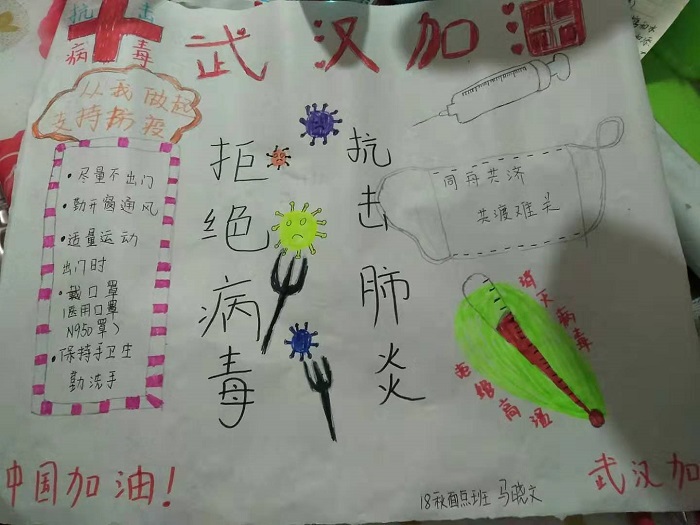 抗击
病毒
武汉加
从我做起
支持防疫
•尽量不出门
•勤开窗通风
•适量运动
出门时
•戴口罩
(医用口罩
N95口罩)
•保持手卫生
勤洗手
拒绝病毒
抗击肺炎
同舟共济
共渡难关
消灭病毒
高温
中国加油!
18秋面点班 马晓文
武汉加